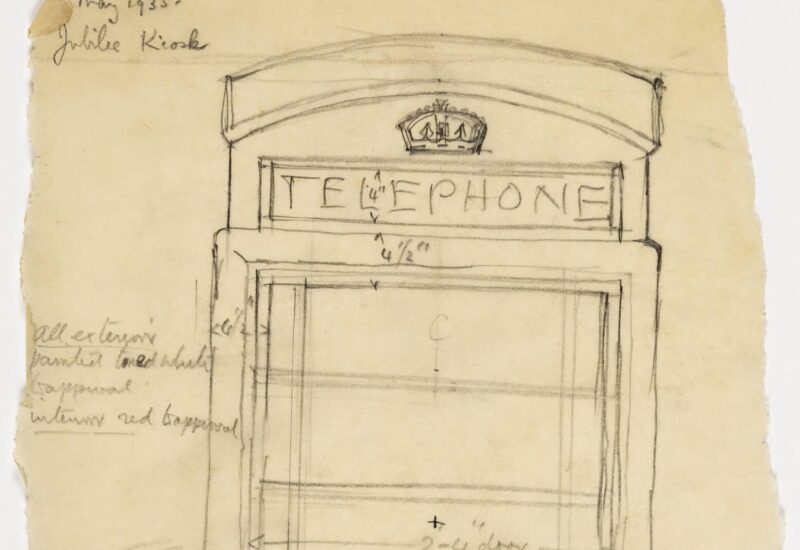 May 1935.
Jubilee Kiosk
TELEPHONE
4"
4½"
6½
C
All exterior
painted toned white
to approval
interior red to approval
2-4" door